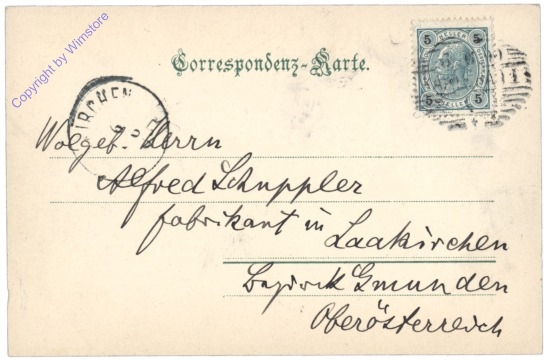 Copyright by Wimstore
Correspondenz-Karte.
5 HELLER 5
5 HELLER 5
IRCHEN
Wolgeb. Herrn
Alfred Schuppler
Fabrikant in
Laakirchen
Bezirk Gmunden
Oberösterreich